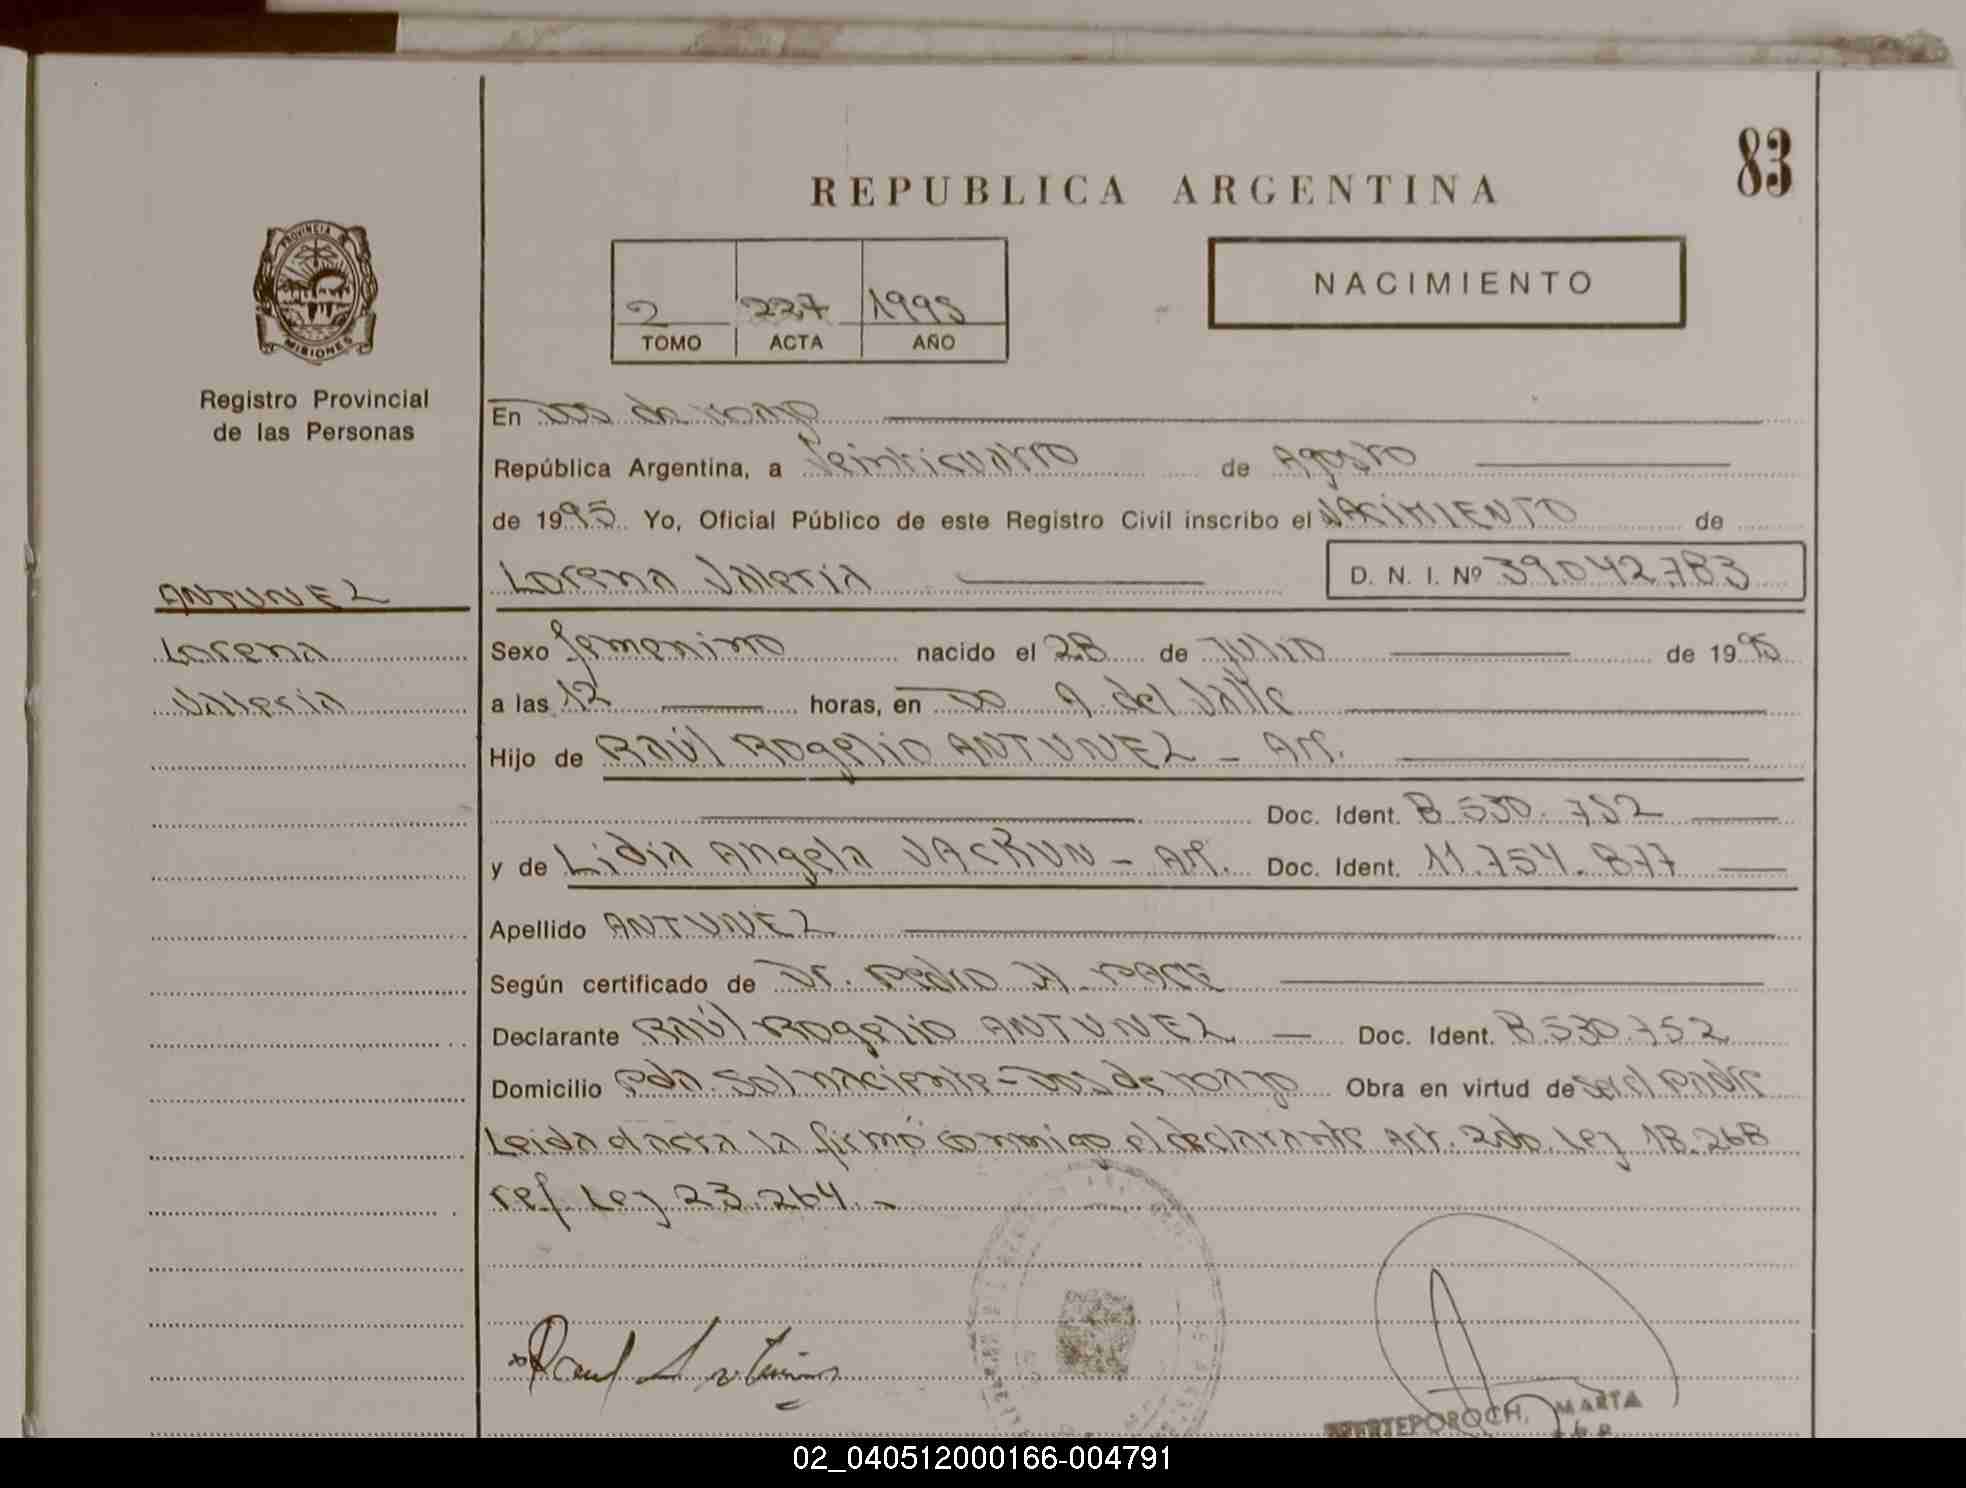 83
REPUBLICA ARGENTINA
PROVINCIA
MISIONES
Registro Provincial
de las Personas
2 227 1995
TOMO ACTA AÑO
NACIMIENTO
En Dos de Mayo
República Argentina, a Veinticuatro de Agosto
de 1995 Yo, Oficial Público de este Registro Civil inscribo el NACIMIENTO de
Lorena Valeria D. N. I. Nº 39.042.783
ANTUNEZ
Lorena
Valeria
Sexo femenino nacido el 28 de Julio de 1995
a las 12 horas, en A. del Valle
Hijo de RAÚl ROgelio ANTUNEZ - Ar.
Doc. Ident. 8.530.752
y de Lidia Angela - Ar. Doc. Ident. 11.754.877
Apellido ANTUNEZ
Según certificado de Dr. Pedro PACE
Declarante RAÚl ROgelio ANTUNEZ Doc. Ident. 8.530.752
Domicilio Pda. Sol naciente - Dos de Mayo Obra en virtud de ser el padre
Leida el acta la firmó conmigo el declarante Art. 2do. Ley 18.268
ref Ley 23.264. -
MARTA
02_040512000166-004791